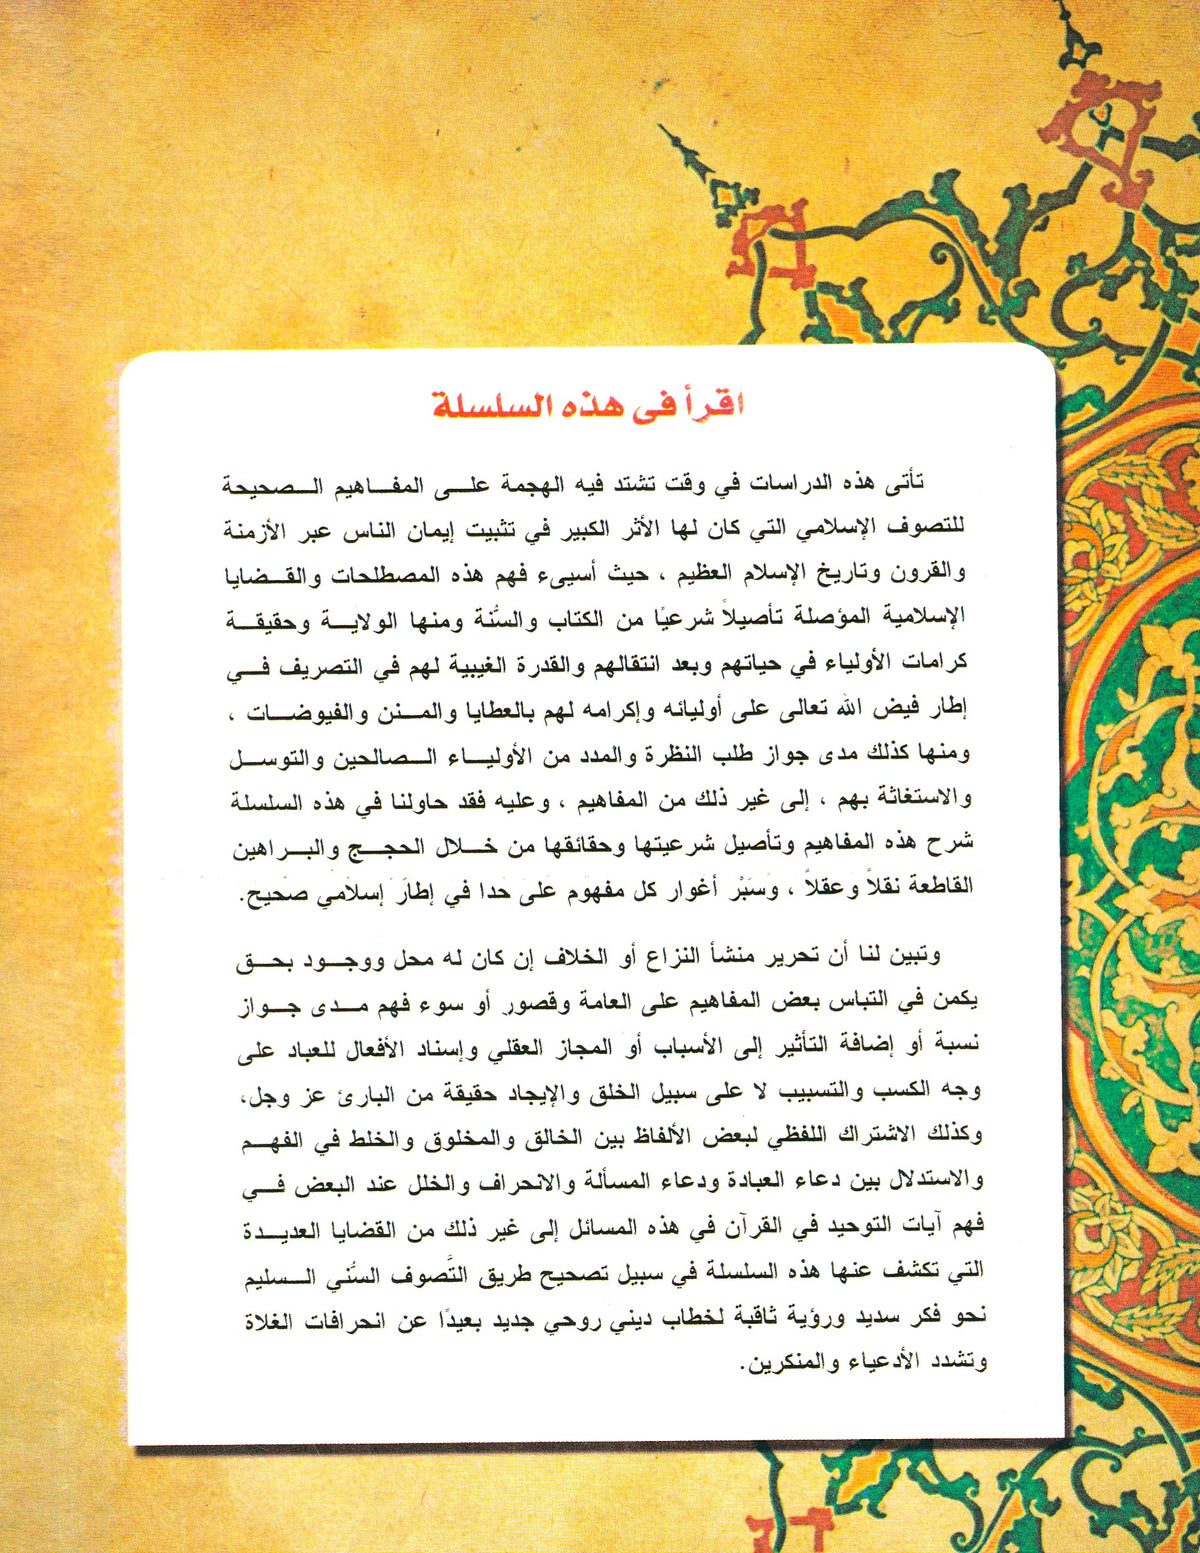 اقرأ فى هذه السلسلة
تأتى هذه الدراسات في وقت تشتد فيه الهجمة على المفاهيم الصحيحة
للتصوف الإسلامي التي كان لها الأثر الكبير في تثبيت إيمان الناس عبر الأزمنة
والقرون وتاريخ الإسلام العظيم ، حيث أسيىء فهم هذه المصطلحات والقضايا
الإسلامية المؤصلة تأصيلاً شرعيًا من الكتاب والسُّنة ومنها الولاية وحقيقة
كرامات الأولياء في حياتهم وبعد انتقالهم والقدرة الغيبية لهم في التصريف في
إطار فيض الله تعالى على أوليائه وإكرامه لهم بالعطايا والمنن والفيوضات ،
ومنها كذلك مدى جواز طلب النظرة والمدد من الأولياء الصالحين والتوسل
والاستغاثة بهم ، إلى غير ذلك من المفاهيم ، وعليه فقد حاولنا في هذه السلسلة
شرح هذه المفاهيم وتأصيل شرعيتها وحقائقها من خلال الحجج والبراهين
القاطعة نقلاً وعقلاً ، وسَبْر أغوار كل مفهوم على حدا في إطار إسلامي صحيح.
وتبين لنا أن تحرير منشأ النزاع أو الخلاف إن كان له محل ووجود بحق
يكمن في التباس بعض المفاهيم على العامة وقصور أو سوء فهم مدى جواز
نسبة أو إضافة التأثير إلى الأسباب أو المجاز العقلي وإسناد الأفعال للعباد على
وجه الكسب والتسبيب لا على سبيل الخلق والإيجاد حقيقة من البارئ عز وجل،
وكذلك الاشتراك اللفظي لبعض الألفاظ بين الخالق والمخلوق والخلط في الفهم
والاستدلال بين دعاء العبادة ودعاء المسألة والانحراف والخلل عند البعض في
فهم آيات التوحيد في القرآن في هذه المسائل إلى غير ذلك من القضايا العديدة
التي تكشف عنها هذه السلسلة في سبيل تصحيح طريق التَّصوف السُّني السليم
نحو فكر سديد ورؤية ثاقبة لخطاب ديني روحي جديد بعيدًا عن انحرافات الغلاة
وتشدد الأدعياء والمنكرين.